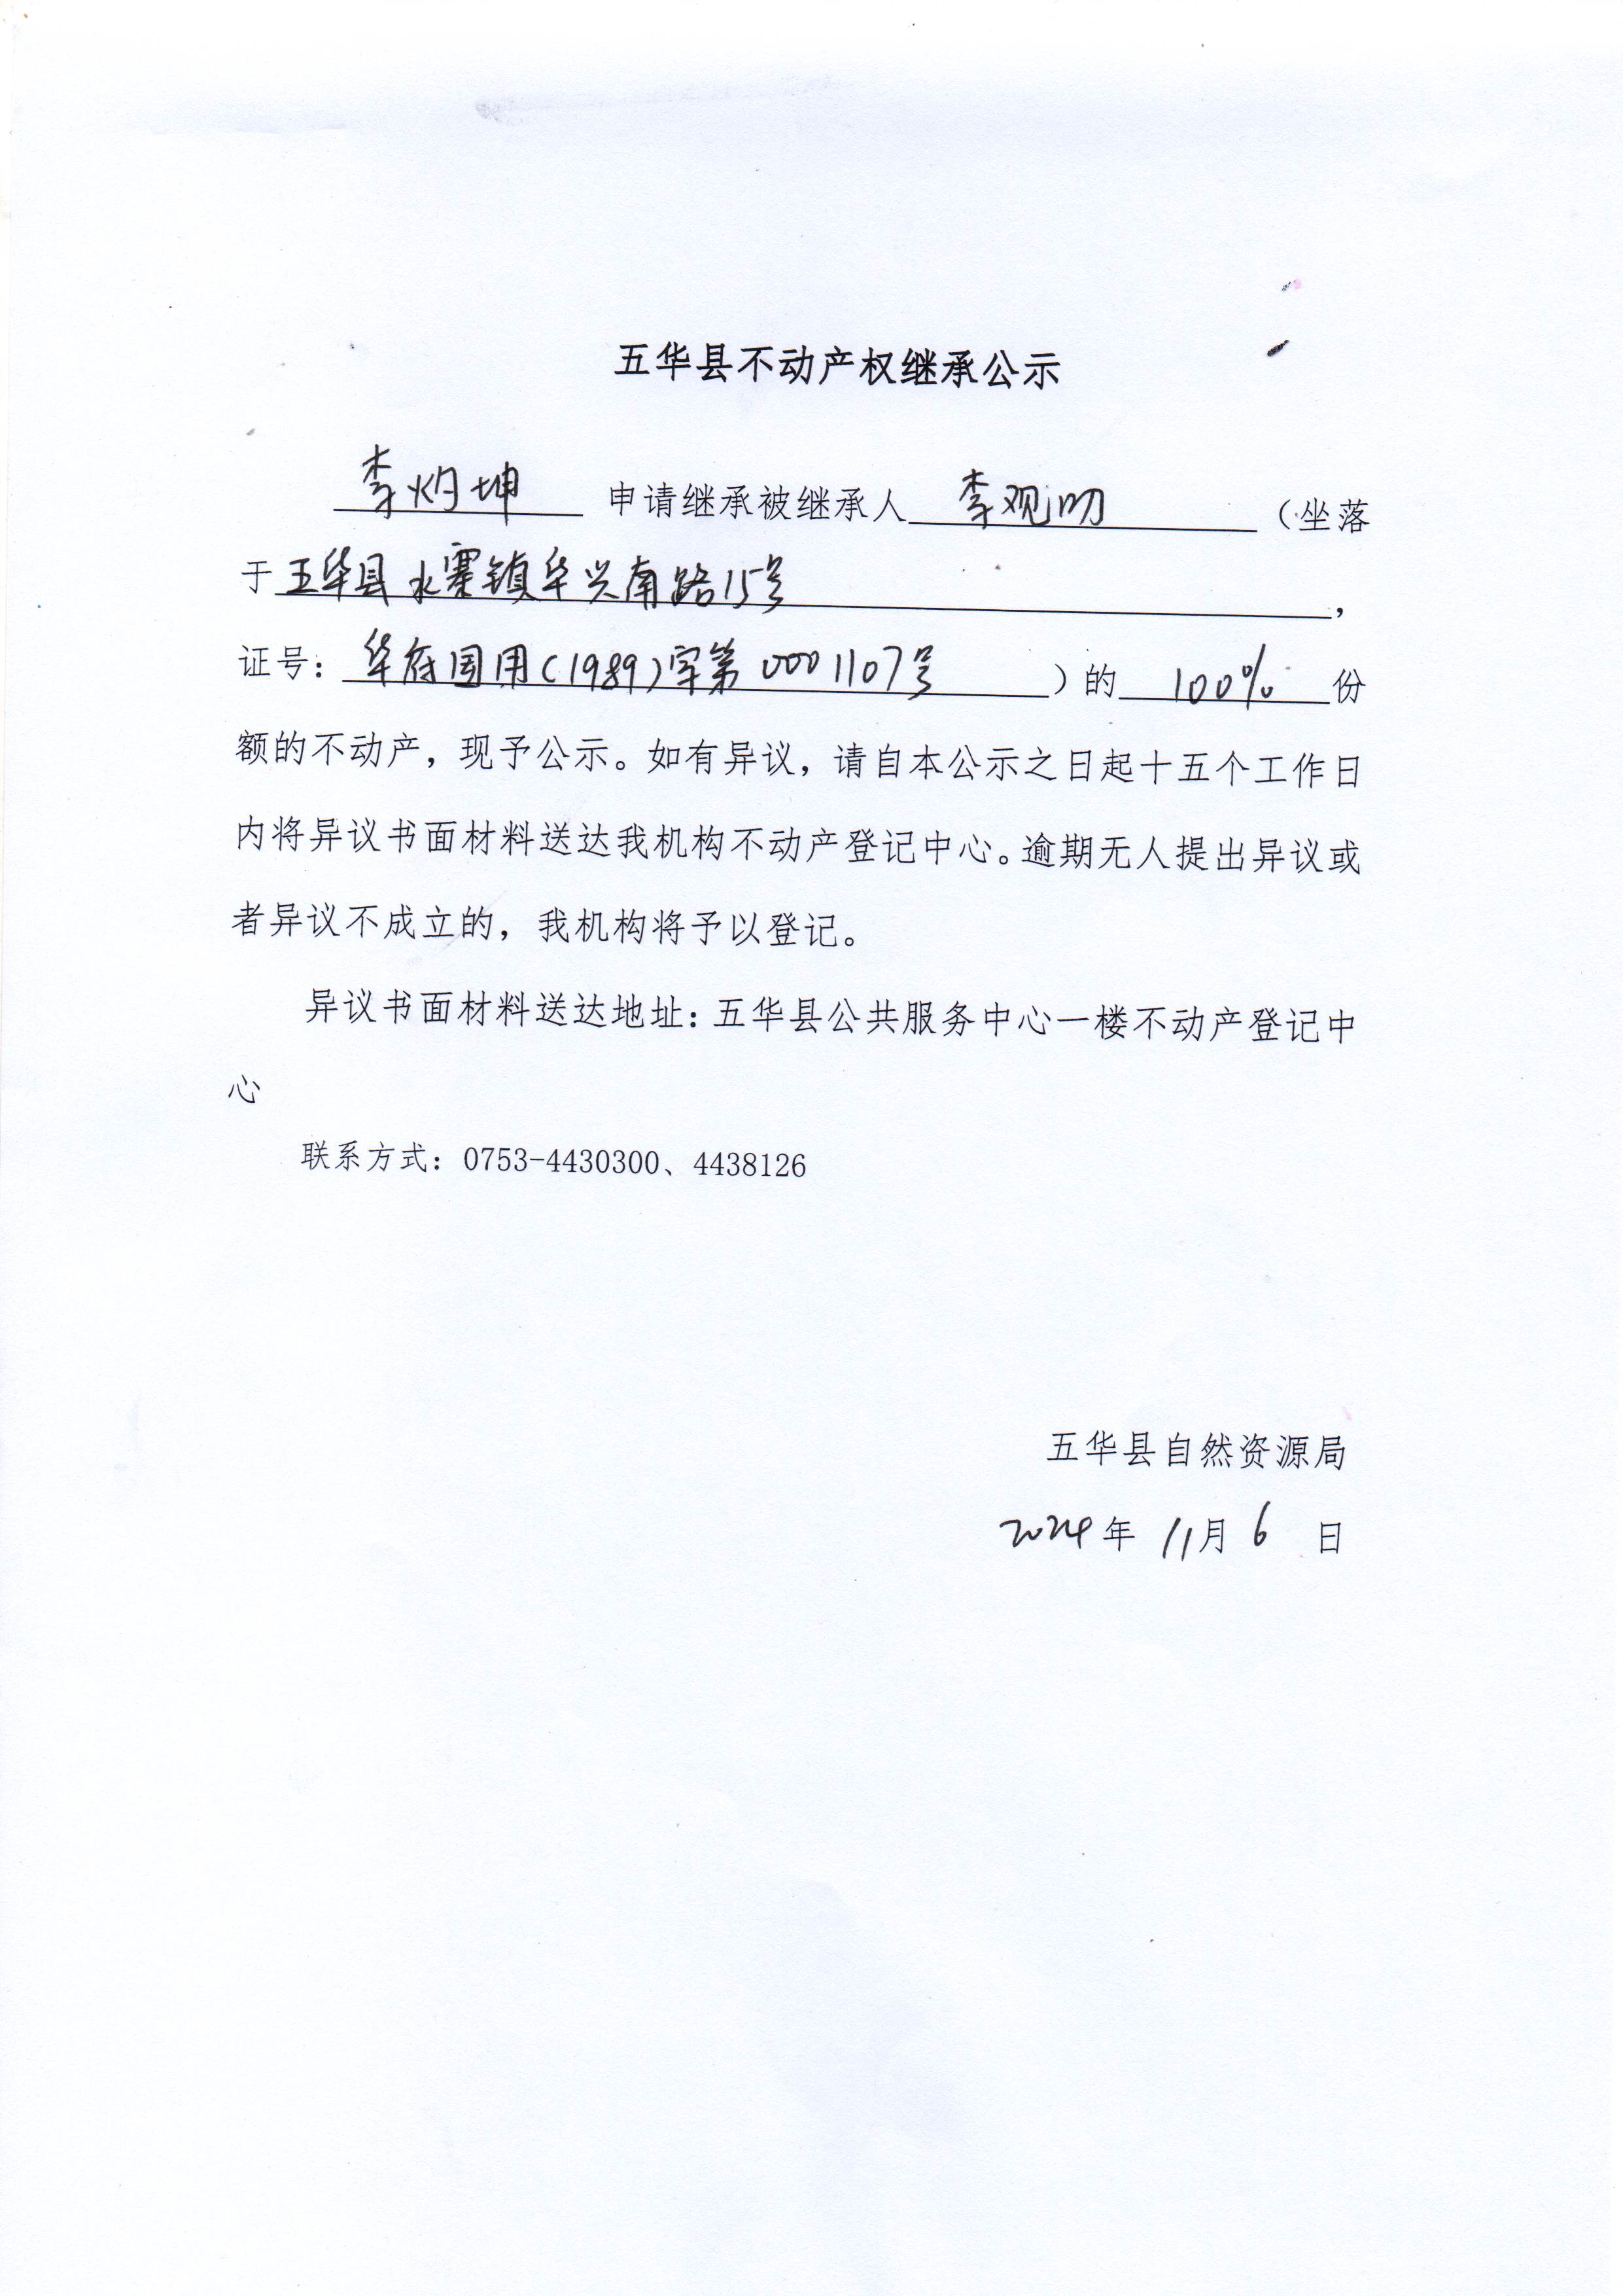 五华县不动产权继承公示
李灼坤 申请继承被继承人 李观明 （坐落
于五华县水寨镇华兴南路15号，
证号：华府国用(1989)字第0001107号）的 100% 份
额的不动产，现予公示。如有异议，请自本公示之日起十五个工作日
内将异议书面材料送达我机构不动产登记中心。逾期无人提出异议或
者异议不成立的，我机构将予以登记。
异议书面材料送达地址：五华县公共服务中心一楼不动产登记中
心
联系方式：0753-4430300、4438126
五华县自然资源局
2024年 11月 6 日